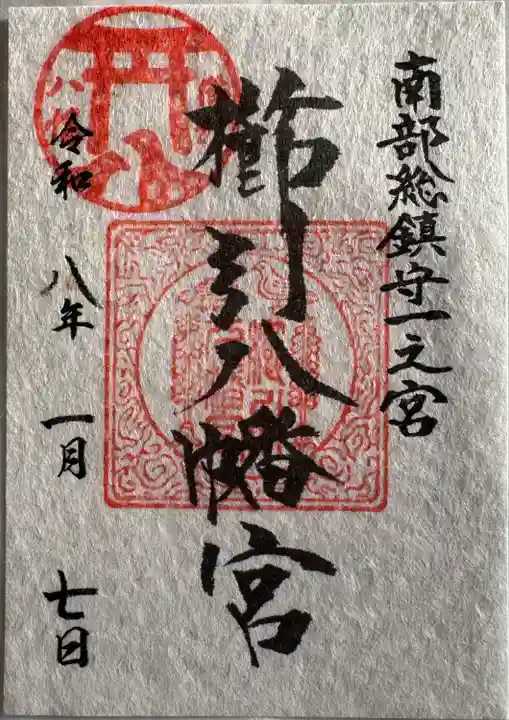 南部総鎮守一之宮
櫛引八幡宮
令和 八年 一月 七日